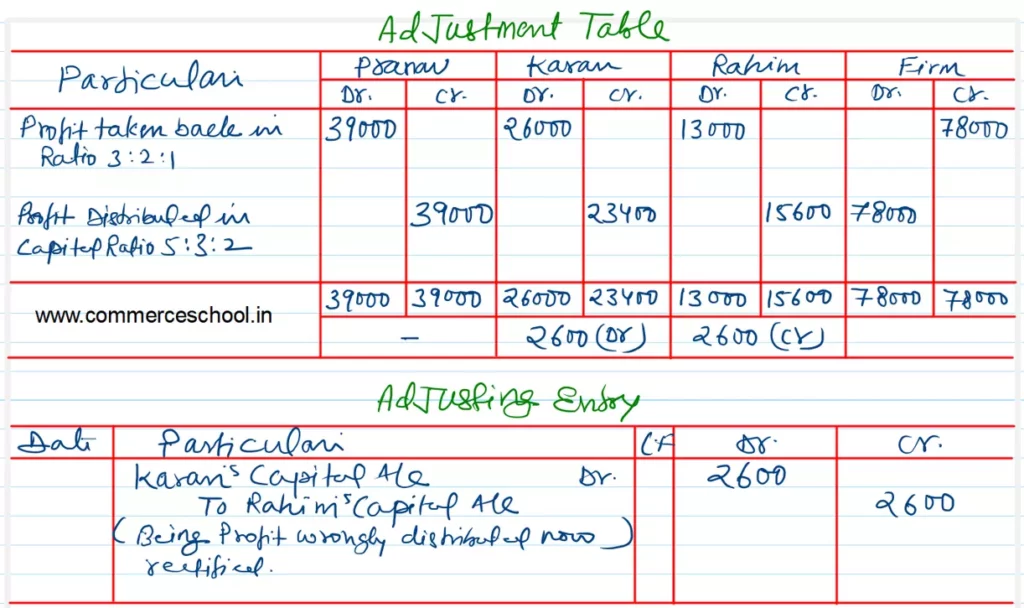 AdJustment Table
Particulari Pranav Karan Rahim Firm
Dr. Cr. Dr. Cr. Dr. Cr. Dr. Cr.
Profit taken back in 39000 26000 13000 78000
Ratio 3:2:1
Profit Distributed in 39000 23400 15600 78000
Capital Ratio 5:3:2
39000 39000 26000 23400 13000 15600 78000 78000
www.commerceschool.in
— 2600 (Dr) 2600 (Cr)
AdJusting Entry
Date Particulari LF Dr. Cr.
Karan's Capital A/c Dr. 2600
To Rahim's Capital A/c 2600
(Being Profit wrongly distributed now)
rectified.